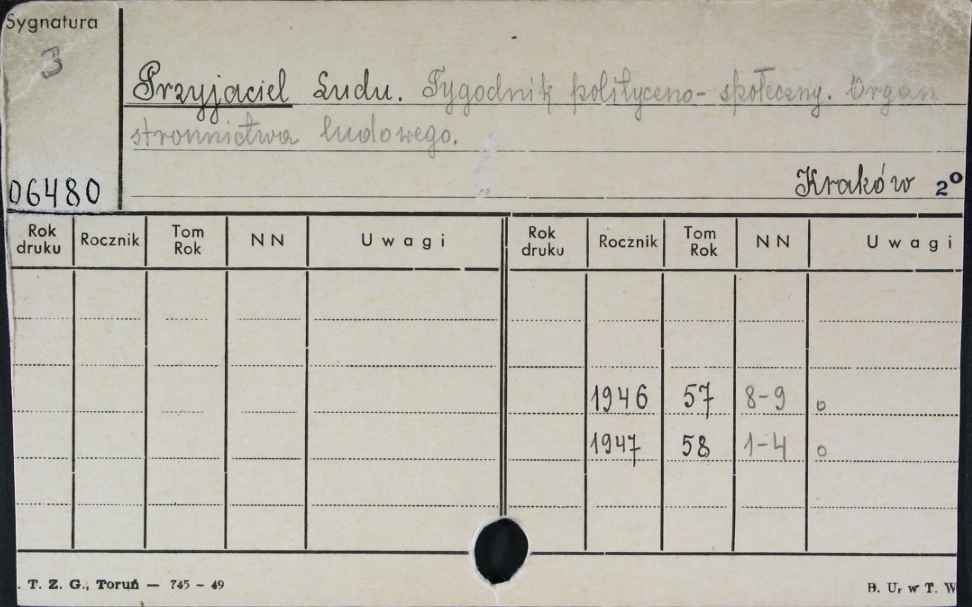 Sygnatura
3
Przyjaciel Ludu. Tygodnik polityczno-społeczny. Organ
stronnictwa ludowego.
06480
Kraków 2°
Rok druku Rocznik Tom Rok NN Uwagi Rok druku Rocznik Tom Rok NN Uwagi
1946 57 8-9 o
1947 58 1-4 o
. T. Z. G., Toruń — 745 - 49 B. U. w T. W